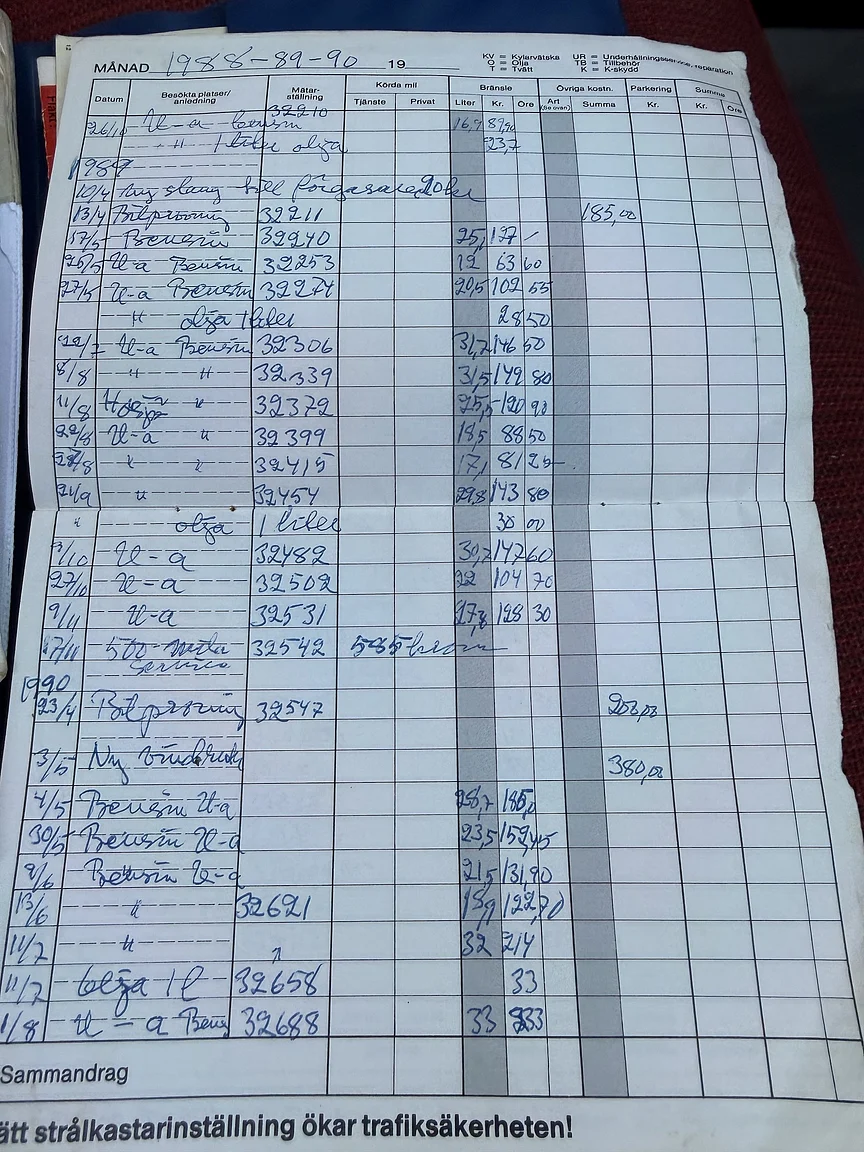 MÅNAD 1988-89-90 19
KV = Kylarvätska UR = Underhållningsservice, reparation
O = Olja TB = Tillbehör
T = Tvätt K = K-skydd
Datum Besökta platser/anledning Mätarställning Körda mil Bränsle Övriga kostn. Parkering Summa
Tjänste Privat Liter Kr. Öre Art (Se ovan) Summa Kr. Kr. Öre
26/10 U-a bensin 32210 16,9 89,90
" 1 liter olja 23,7
1989
10/4 Ny slang till förgasare 20 kr
13/4 Bilprovning 32211 185,00
17/5 Bensin 32240 25, 127 -
26/5 U-a Bensin 32253 12 63 60
27/5 U-a Bensin 32274 20,5 102 55
" olja 1 liter 28 50
U-a Bensin 32306 31,7 146 50
8/8 " " 32339 31,5 149 80
11/8 " 32372 25,5 120 90
22/8 U-a " 32399 18,5 88 50
28/8 " " 32415 17,1 81 25
21/9 " 32454 29,8 143 80
" olja 1 liter 30 00
9/10 U-a 32482 30,7 147 60
27/10 U-a 32502 22 104 70
9/11 U-a 32531 27,8 128 30
17/11 500 mila Service 32542 585 kronor
1990
23/4 Bilprovning 32547 200,00
3/5 Ny vindruta 380,00
4/5 Bensin U-a 28,7 185,0
30/5 Bensin U-a 23,5 152,45
9/6 Bensin U-a 21,5 131,90
13/6 " 32621 18,9 122,70
11/7 " 32 214
11/7 olja 1 l 32658 33
1/8 U-a Bens 32688 33 233
Sammandrag
ätt strålkastarinställning ökar trafiksäkerheten!